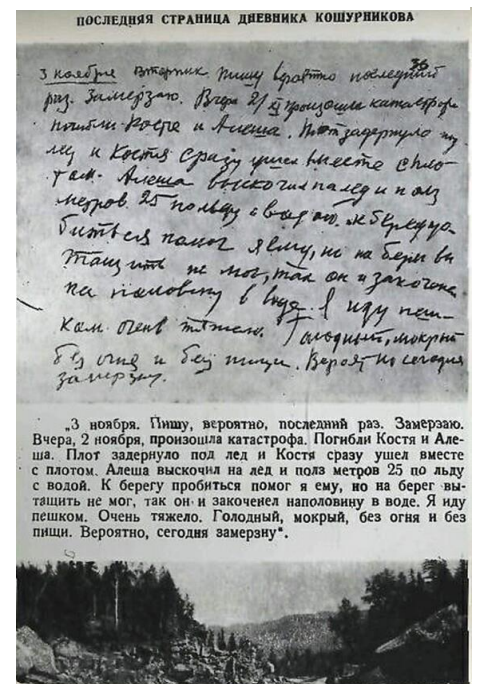 ПОСЛЕДНЯЯ СТРАНИЦА ДНЕВНИКА КОШУРНИКОВА
36
3 ноября Вторник Пишу вероятно последний
раз. Замерзаю. Вчера 2/XI произошла катастрофа
погибли Костя и Алеша. Плот задернуло под
лед и Костя сразу ушел вместе с пло-
том. Алеша выскочил на лед и полз
метров 25 по льду с водой. К берегу про-
биться помог я ему, но на берег вы
тащить не мог, так он и закоченел
на половину в воде. Я иду пеш-
ком. Очень тяжело. Голодный, мокрый
без огня и без пищи. Вероятно сегодня
замерзну.
„3 ноября. Пишу, вероятно, последний раз. Замерзаю.
Вчера, 2 ноября, произошла катастрофа. Погибли Костя и Але-
ша. Плот задернуло под лед и Костя сразу ушел вместе
с плотом. Алеша выскочил на лед и полз метров 25 по льду
с водой. К берегу пробиться помог я ему, но на берег вы-
тащить не мог, так он и закоченел наполовину в воде. Я иду
пешком. Очень тяжело. Голодный, мокрый, без огня и без
пищи. Вероятно, сегодня замерзну".